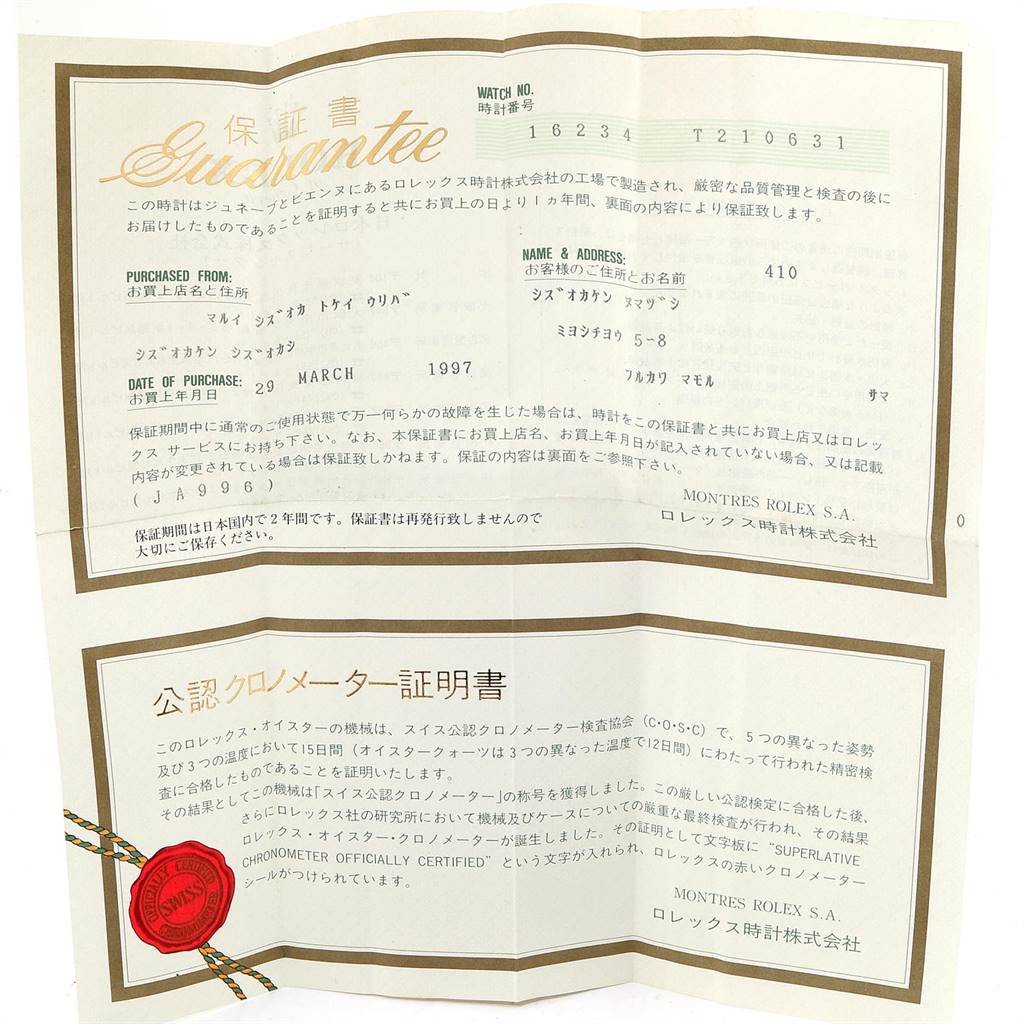 保証書
Guarantee
WATCH NO.
時計番号
16234 T210631
この時計はジュネーブとビエンヌにあるロレックス時計株式会社の工場で製造され、厳密な品質管理と検査の後に
お届けしたものであることを証明すると共にお買上の日より1ヵ年間、裏面の内容により保証致します。
PURCHASED FROM:
お買上店名と住所
マルイ シズ゛オカ トケイ ウリバ゛
シズ゛オカケン シズ゛オカシ
DATE OF PURCHASE:
お買上年月日
29 MARCH 1997
NAME & ADDRESS:
お客様のご住所とお名前
410
シズ゛オカケン ヌマツ゛シ
ミヨシチヨウ 5-8
フルカワ マモル サマ
保証期間中に通常のご使用状態で万一何らかの故障を生じた場合は、時計をこの保証書と共にお買上店又はロレッ
クス サービスにお持ち下さい。なお、本保証書にお買上店名、お買上年月日が記入されていない場合、又は記載
内容が変更されている場合は保証致しかねます。保証の内容は裏面をご参照下さい。
(JA996)
MONTRES ROLEX S.A.
ロレックス時計株式会社
0
保証期間は日本国内で2年間です。保証書は再発行致しませんので
大切にご保存ください。
公認クロノメーター証明書
このロレックス・オイスターの機械は、スイス公認クロノメーター検査協会(C・O・S・C)で、5つの異なった姿勢
及び3つの温度において15日間(オイスタークォーツは3つの異なった温度で12日間)にわたって行われた精密検
査に合格したものであることを証明いたします。
その結果としてこの機械は「スイス公認クロノメーター」の称号を獲得しました。この厳しい公認検定に合格した後、
さらにロレックス社の研究所において機械及びケースについての厳重な最終検査が行われ、その結果
ロレックス・オイスター・クロノメーターが誕生しました。その証明として文字板に“SUPERLATIVE
CHRONOMETER OFFICIALLY CERTIFIED”という文字が入れられ、ロレックスの赤いクロノメーター
シールがつけられています。
MONTRES ROLEX S.A.
ロレックス時計株式会社
OFFICIALLY CERTIFIED
SWISS
CHRONOMETER